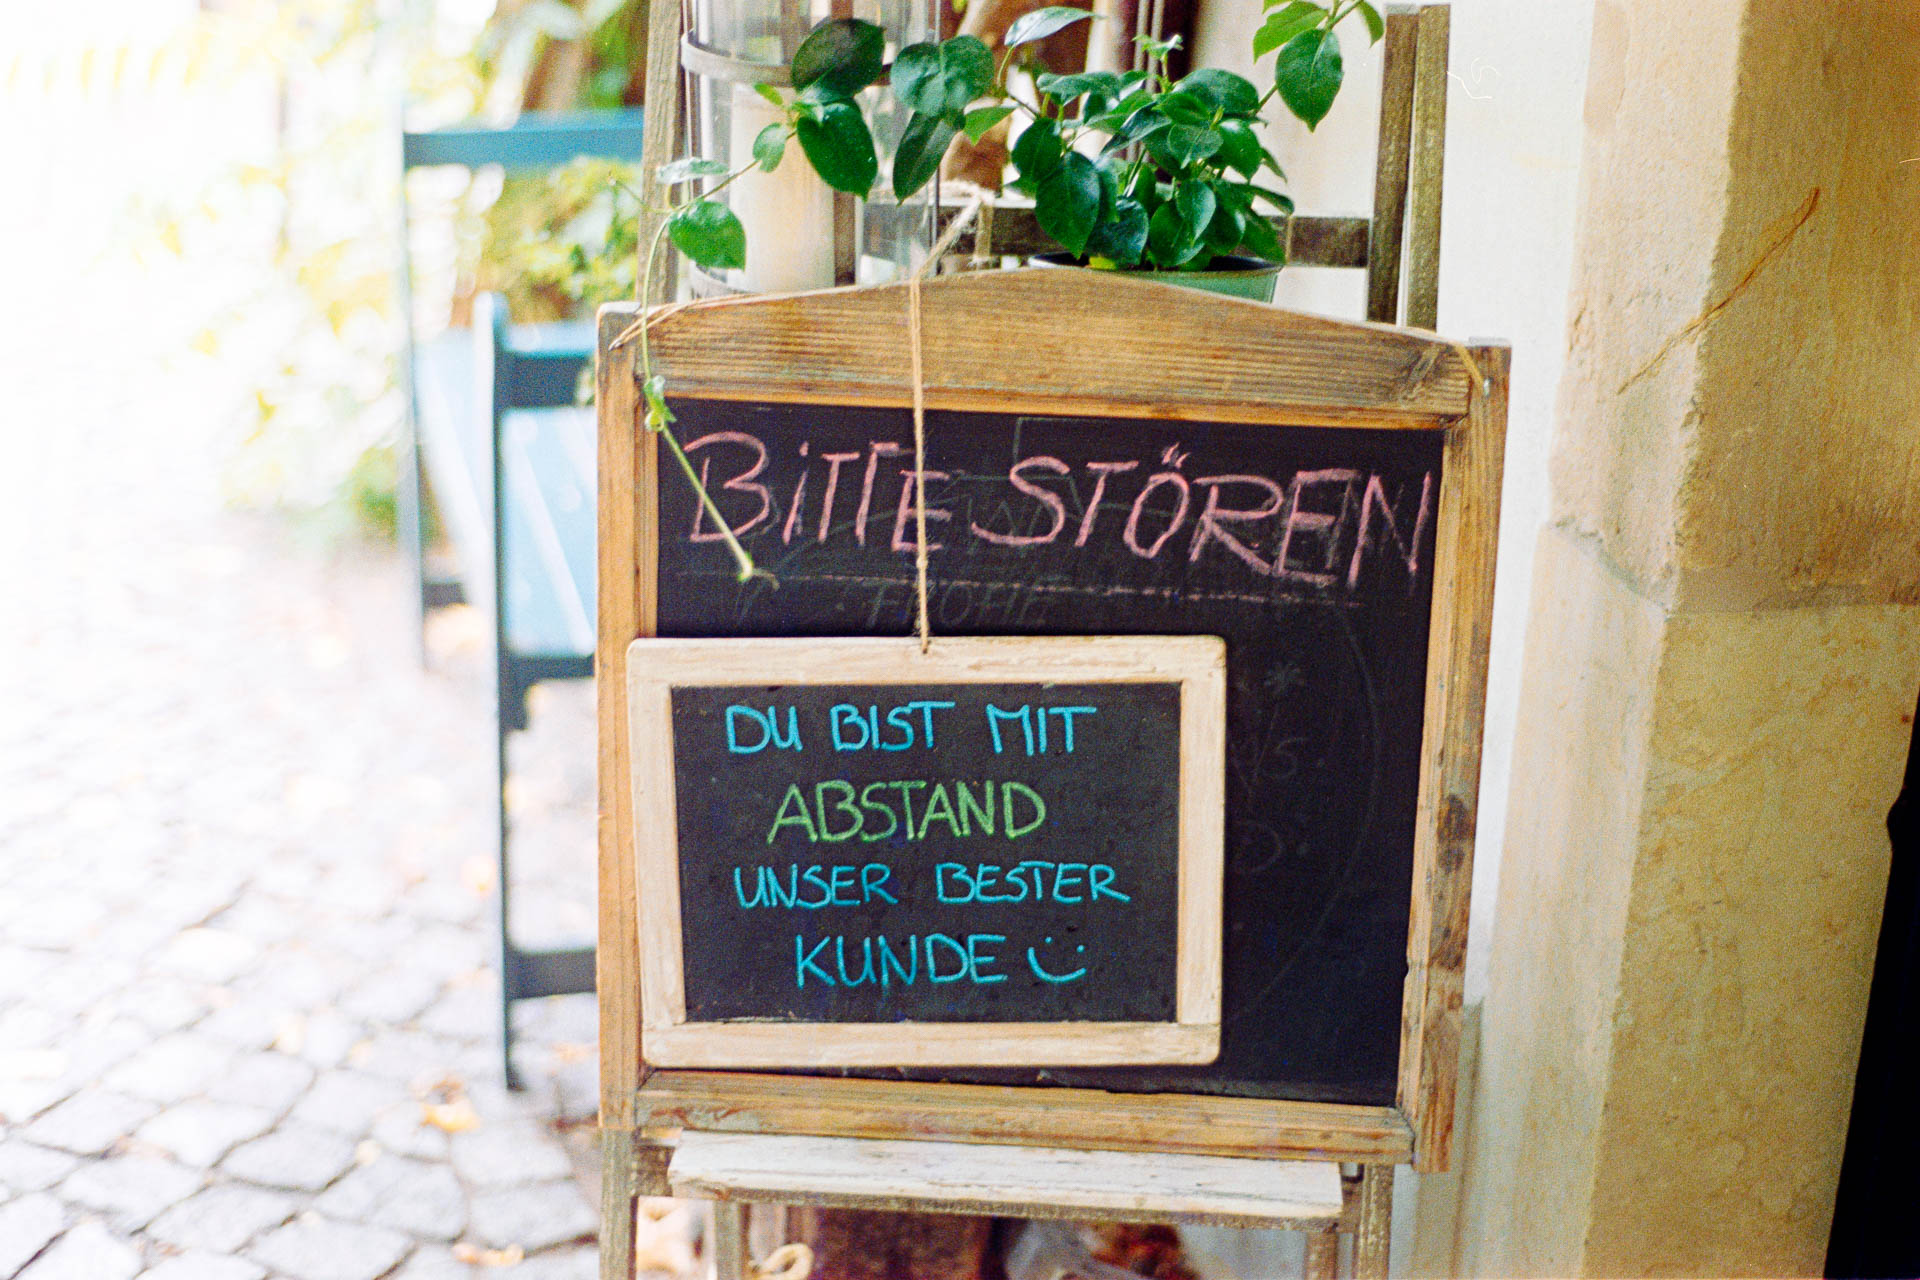 BITTE STÖREN
FROHE
DU BIST MIT
ABSTAND
UNSER BESTER
KUNDE